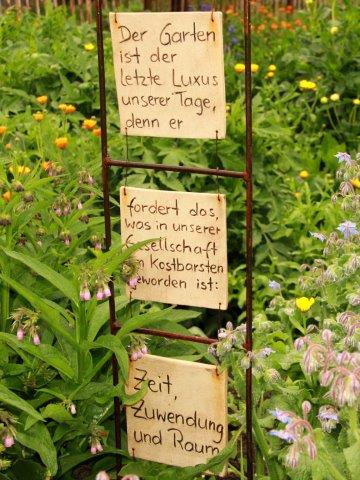 Der Garten
ist der
letzte Luxus
unserer Tage,
denn er
fordert das,
was in unserer
Gesellschaft
am Kostbarsten
geworden ist:
Zeit,
Zuwendung
und Raum